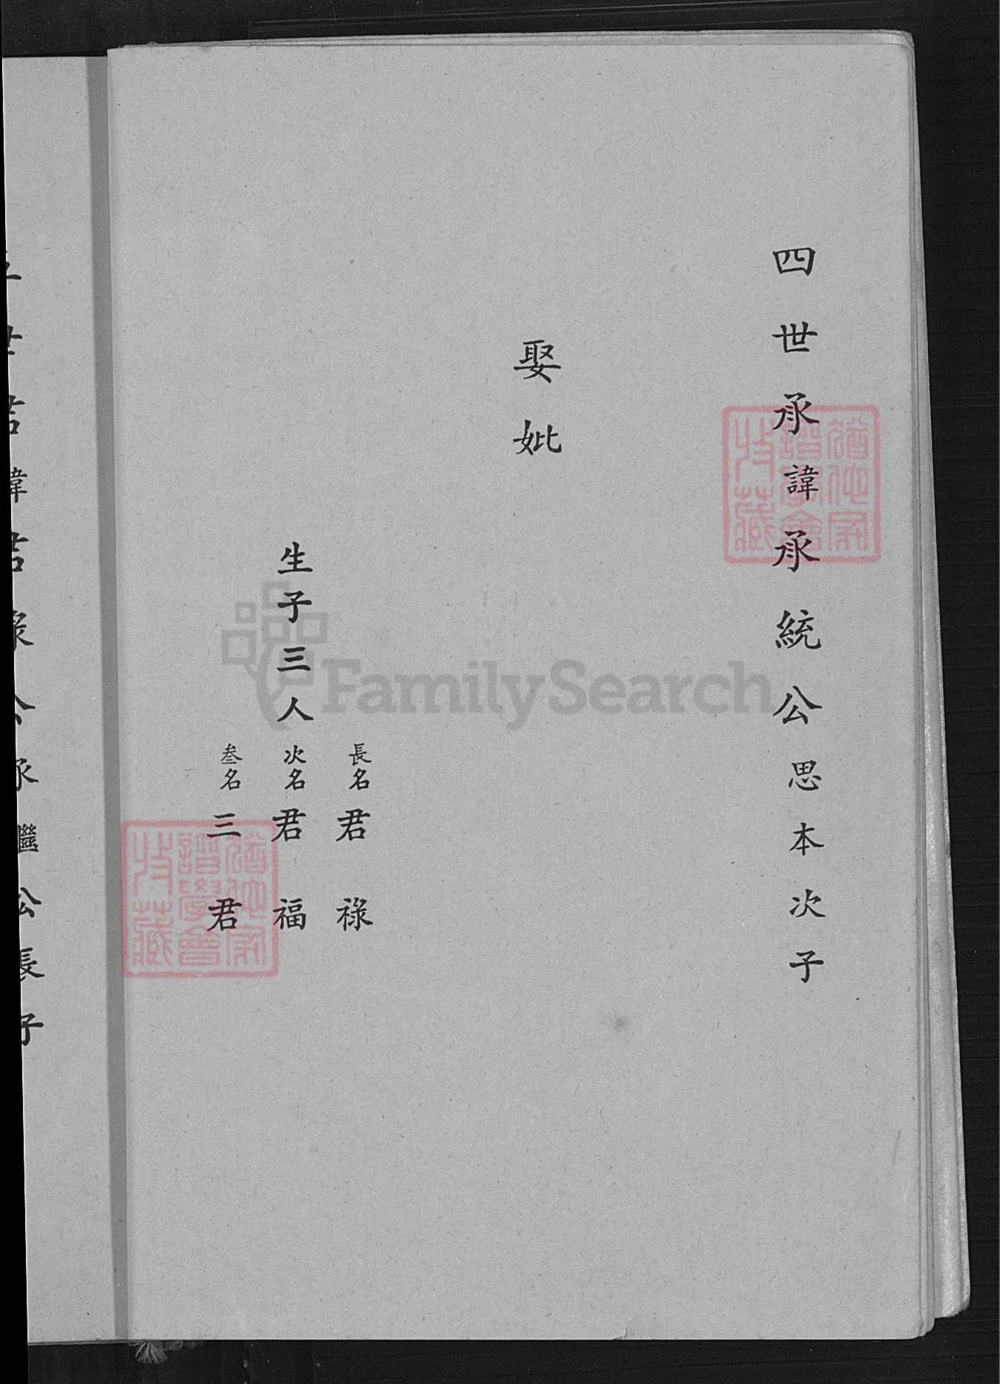 四世承諱承統公思本次子
娶妣
生子三人
長名君祿
次名君福
叁名三君
世君諱君祿公承繼公長子
譜學會
收藏
譜學會
收藏
FamilySearch